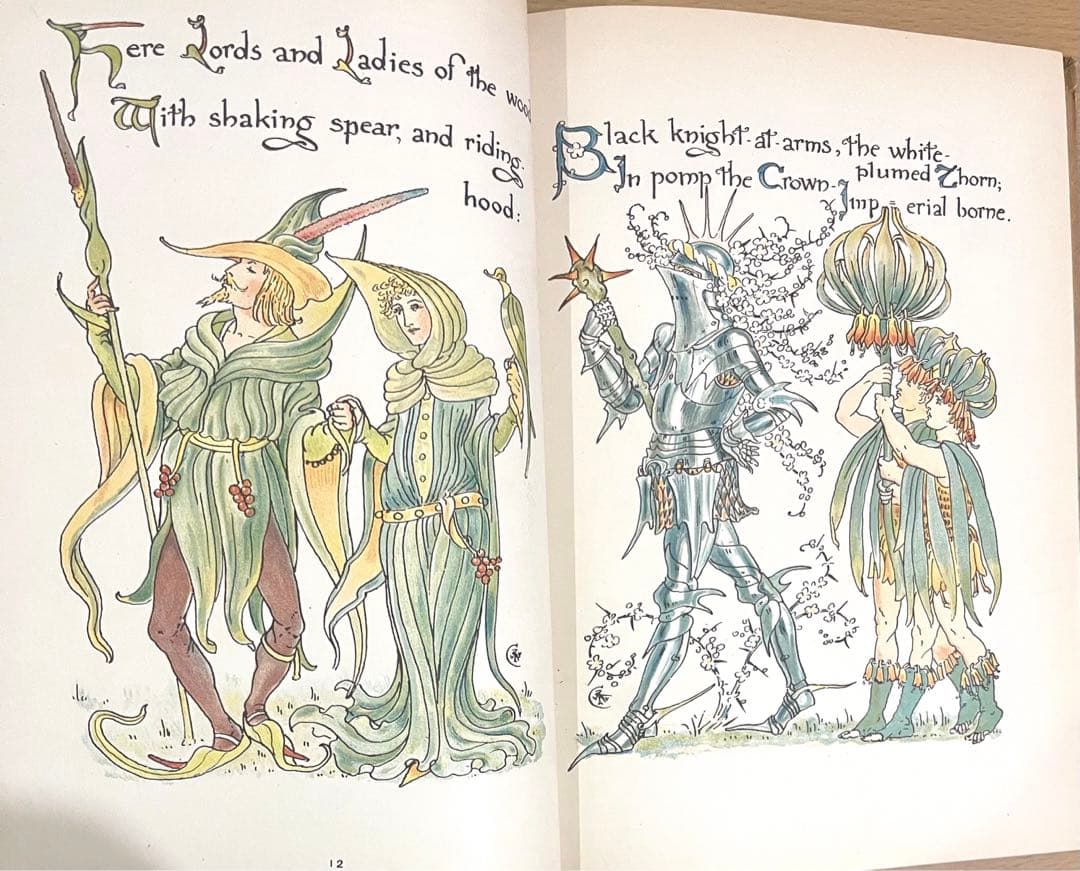 Here Lords and Ladies of the wood
With shaking spear, and riding-
hood:
12
Black knight-at-arms, the white-
plumed Thorn;
In pomp the Crown-
Imp=erial borne.